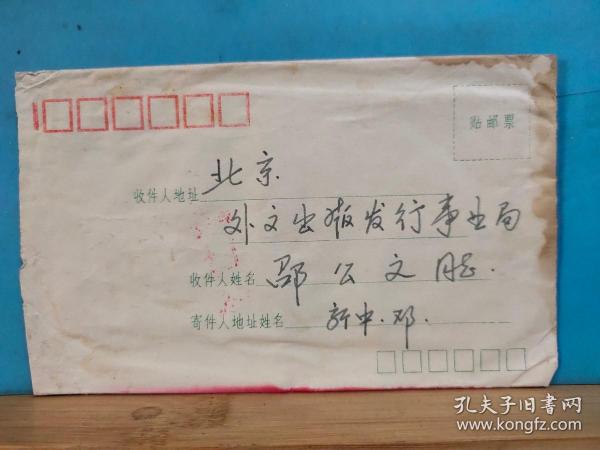 贴邮票
收件人地址 北京
外文出版发行事业局
收件人姓名 邵公文 同志.
寄件人地址姓名 新中.邓.
孔夫子旧书网
www.kongfz.com